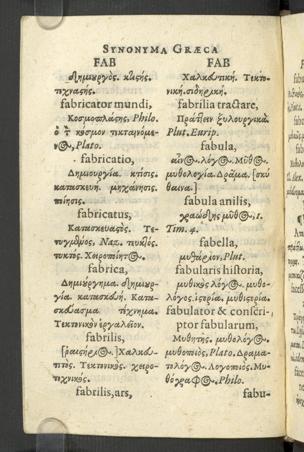 SYNONYMA GRÆCA
FAB
δημιουργὸς. κτίστης.
τεχνάστης.
fabricator mundi,
Κοσμοπλάστης. Philo.
ὁ τὸν κόσμον τεκταινόμε-
νος, Plato.
fabricatio,
Δημιουργία. κτίσις.
κατασκευή. μηχάνησις.
ποίησις.
fabricatus,
Κατασκευαστός. Τε-
τυγμένος, Naz. τυκτός.
τυκτός. Χειροποίητος.
fabrica,
Δημιούργημα. δημιουρ-
γία. κατασκευή. Κατα-
σκεύασμα. τέχνημα.
Τεκτονικὸν ἐργαλεῖον.
fabrilis,
Χαλκευ-
τικός. Τεκτονικός. χειρο-
τεχνικός.
fabrilis, ars,
FAB
Χαλκευτική. Τεκτο-
νική. σιδηρική.
fabrilia tractare,
Πράττειν ξυλουργικά.
Plut. Eurip.
fabula,
αἶνος. λόγος. Μῦθος.
μυθολογία. Δρᾶμα.
fabula anilis,
γραώδης μῦθος, 1.
Tim. 4.
fabella,
μυθάριον, Plut.
fabularis historia,
μυθικὸς λόγος. μυθο-
λόγος. ἱστορία. μυθιστορία.
fabulator & conscri-
ptor fabularum,
Μυθητής. μυθολόγος.
μυθοποιὸς, Plato. Δραμα-
τολόγος. Λογοποιός. Μυ-
θόγραφος. Philo.
fabu-